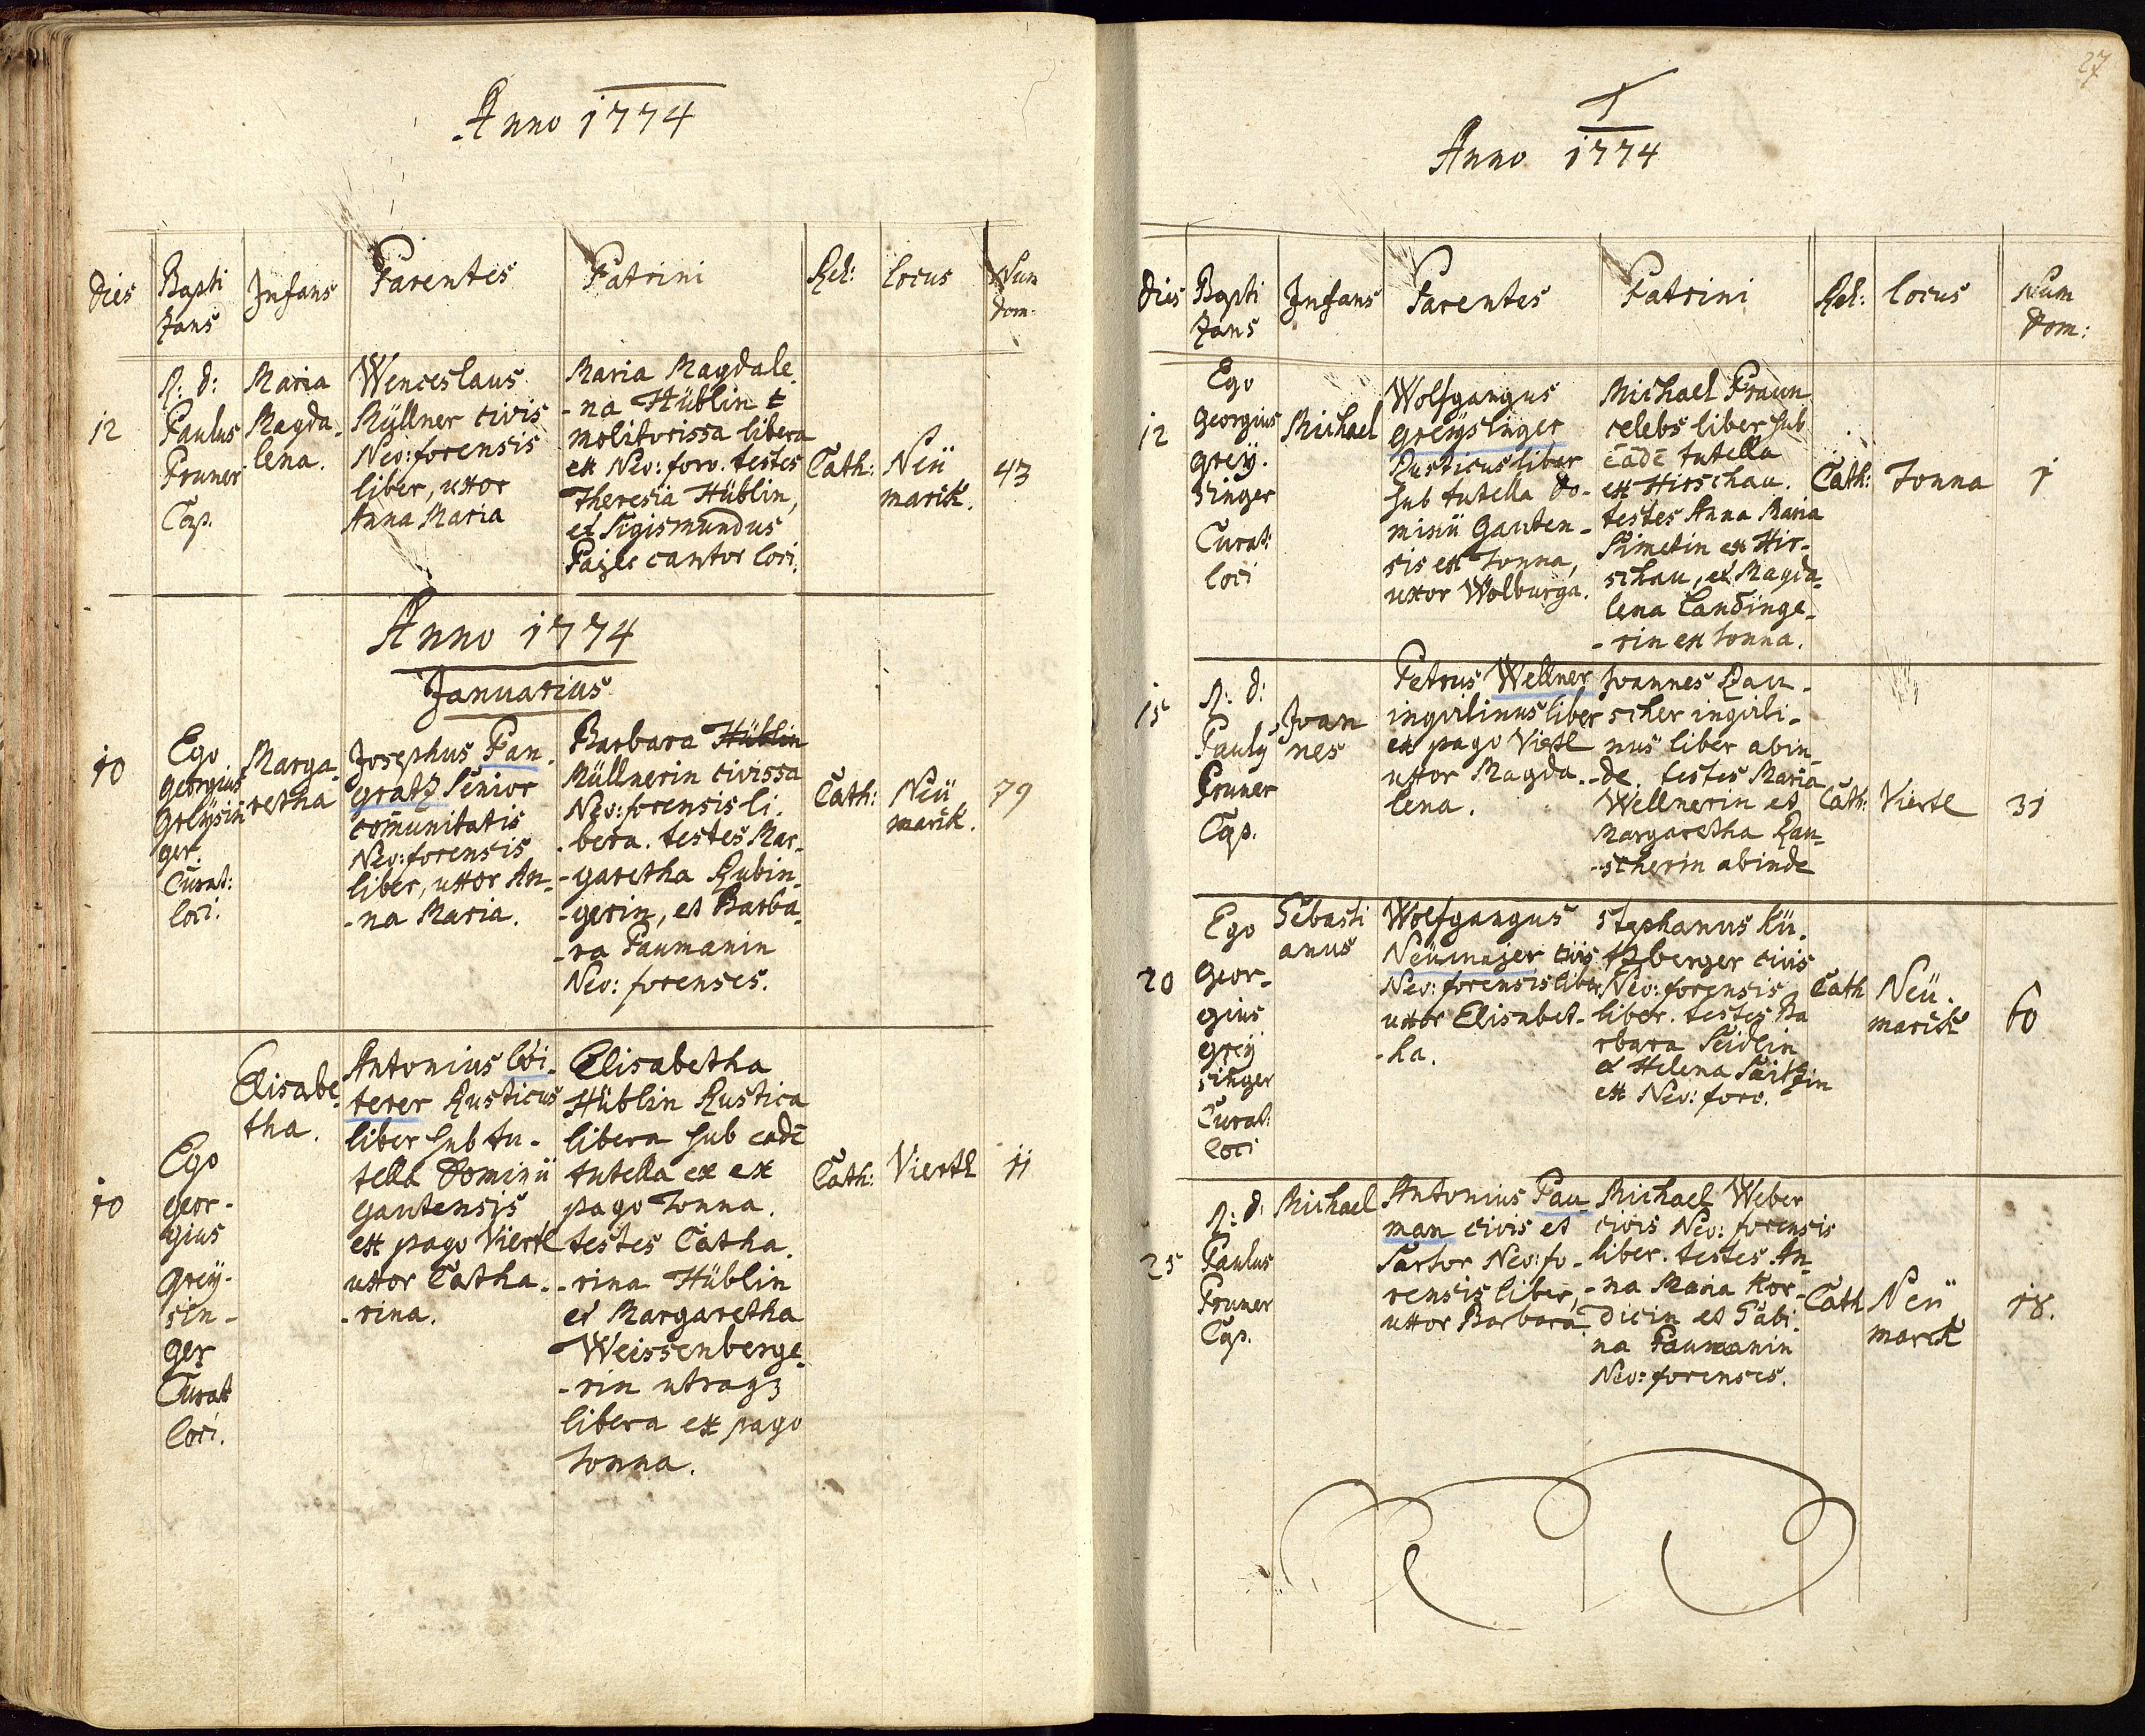 Anno 1774
dies
Bapti
zans
Infans
Parentes
Patrini
Rel:
locus
Num
dom.
12
R: d:
Paulus
Pruner
Cap.
Maria
Magda-
lena.
Wenceslaus
Müllner civis
Neo: forensis
liber, uxor
Anna Maria
Maria Magdale
-na Hüblin
molitorissa libera
ex Neo: foro. testes
Theresia Hüblin,
et Sigismundus
Pajer cantor loci.
Cath:
Neü
marck.
43
Anno 1774
Januarius
10
Ego
Georgius
Greÿsin
ger.
Curat:
loci.
Marga-
retha
Josephus Pan-
gratz Senior
com̄unitatis
Neo: forensis
liber, uxor An-
-na Maria.
Barbara Hüblin
Müllnerin civissa
Neo: forensis li-
-bera. testes Mar-
-garetha Rubin-
-gerin, et Barba-
-ra Paumanin
Neo: forenses.
Cath:
Neü
marck.
79
10
Ego
Geor-
gius
Greÿ-
sin-
ger
Curat
loci.
Elisabe-
tha.
Antonius Loi-
terer Rusticus
liber sub tu-
tella Dominii
Gautensis
ex pago Viertl
uxor Catha-
-rina.
Elisabetha
Hüblin Rustica
libera sub eadē
tutella ex ex
pago Tonna.
testes Catha-
-rina Hüblin
et Margaretha
Weissenberge-
-rin utraqꝫ
libera ex pago
Tonna.
Cath:
Viertl
11
27
1
Anno 1774
dies
Bapti
zans
Infans
Parentes
Patrini
Rel:
locus
Num
Dom:
12
Ego
Georgius
Greÿ-
singer
Curat:
loci
Michael
Wolfgangus
Greÿslinger
Rusticus liber
sub tutella Do-
minii Gauten-
sis ex Tonna,
uxor Wolburga.
Michael Praun
celebs liber sub
eādē tutella
ex Hirschau.
testes Anna Maria
Simetin ex Hir-
schau, et Magda-
lena Landinge-
-rin ex Tonna.
Cath:
Tonna
1
15
R: d:
Pauly
Pruner
Cap.
Joan
nes
Petrus Wellner
inqvilinus liber
ex pago Viertl
uxor Magda-
lena.
Joannes Rau-
scher inqvili-
nus liber abin-
-de. testes Maria
Wellnerin et
Margaretha Rau-
-scherin abinde
Cath:
Viertl
31
20
Ego
Geor-
gius
Greÿ
singer
Curat:
loci
Sebasti
anus
Wolfgangus
Neümajer civis
Neo: forensis liber
uxor Elisabet-
-ha.
Stephanus Kü-
tzberger civis
Neo: forensis
liber. testes Ba
rbara Seidlin
et Helena
ex Neo: foro.
Cath
Neü-
marck
60
25
R: d:
Paulus
Pruner
Cap.
Michael
Antonius Pau
man civis et
Sartor Neo: fo-
rensis liber,
uxor Barbara
Michael Weber
civis Neo: forensis
liber. testes An-
-na Maria Kor-
dicin et Sabi-
na Paumanin
Neo: forenses.
Cath
Neü
marck
18.